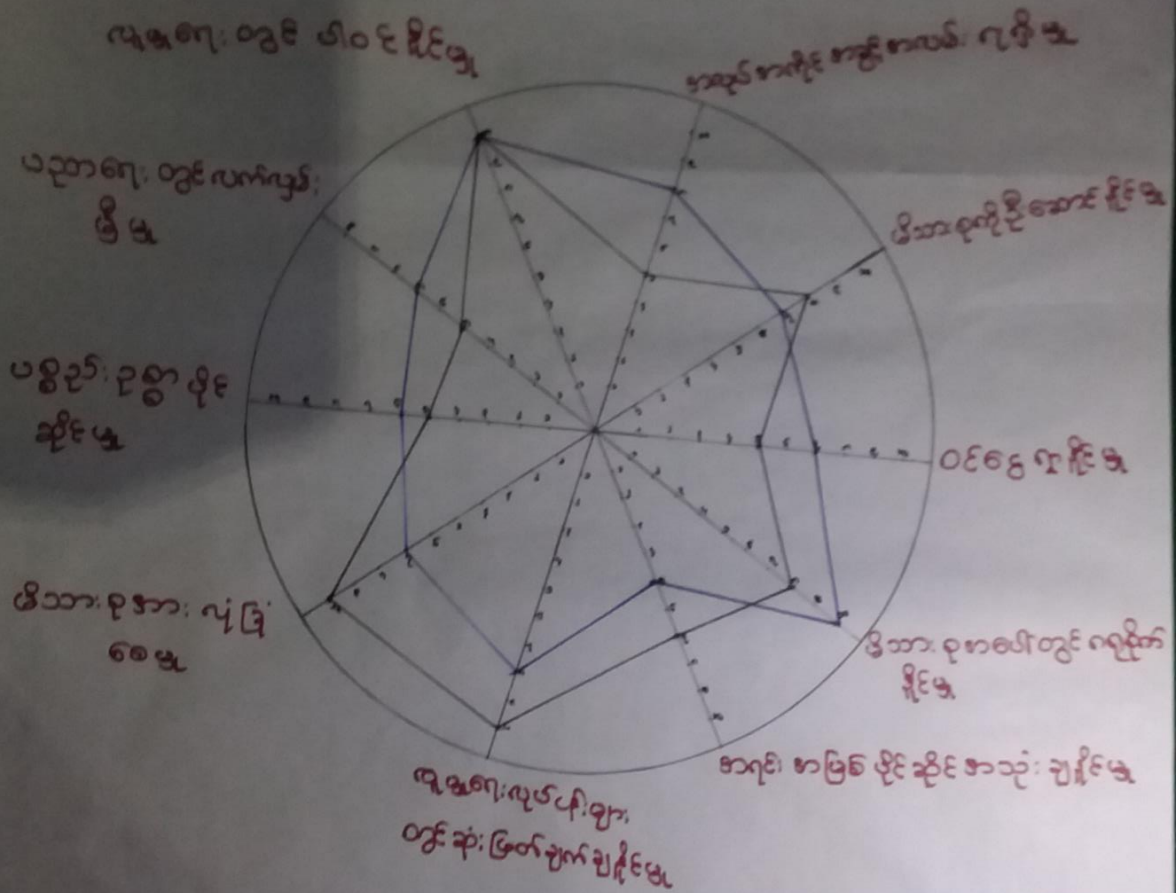 လူမှုရေး တွင် ပါဝင်နိုင်မှု
အလုပ်အကိုင်အခွင့်အလမ်း ရရှိမှု
မိသားစုကိုဦးဆောင်နိုင်မှု
ဝင်ငွေရှာနိုင်မှု
မိသားစုအပေါ်တွင် ဂရုစိုက်
နိုင်မှု
အရင်းအမြစ်ပိုင်ဆိုင်အသုံးချနိုင်မှု
လူမှုရေးလုပ်ငန်းများ
တွင်ဆုံးဖြတ်ချက်ချနိုင်မှု
မိသားစုအား လုံခြုံ
စေမှု
ပစ္စည်းဥစ္စာ ပိုင်
ဆိုင်မှု
ပညာရေးတွင်လက်လှမ်း
မှီမှု